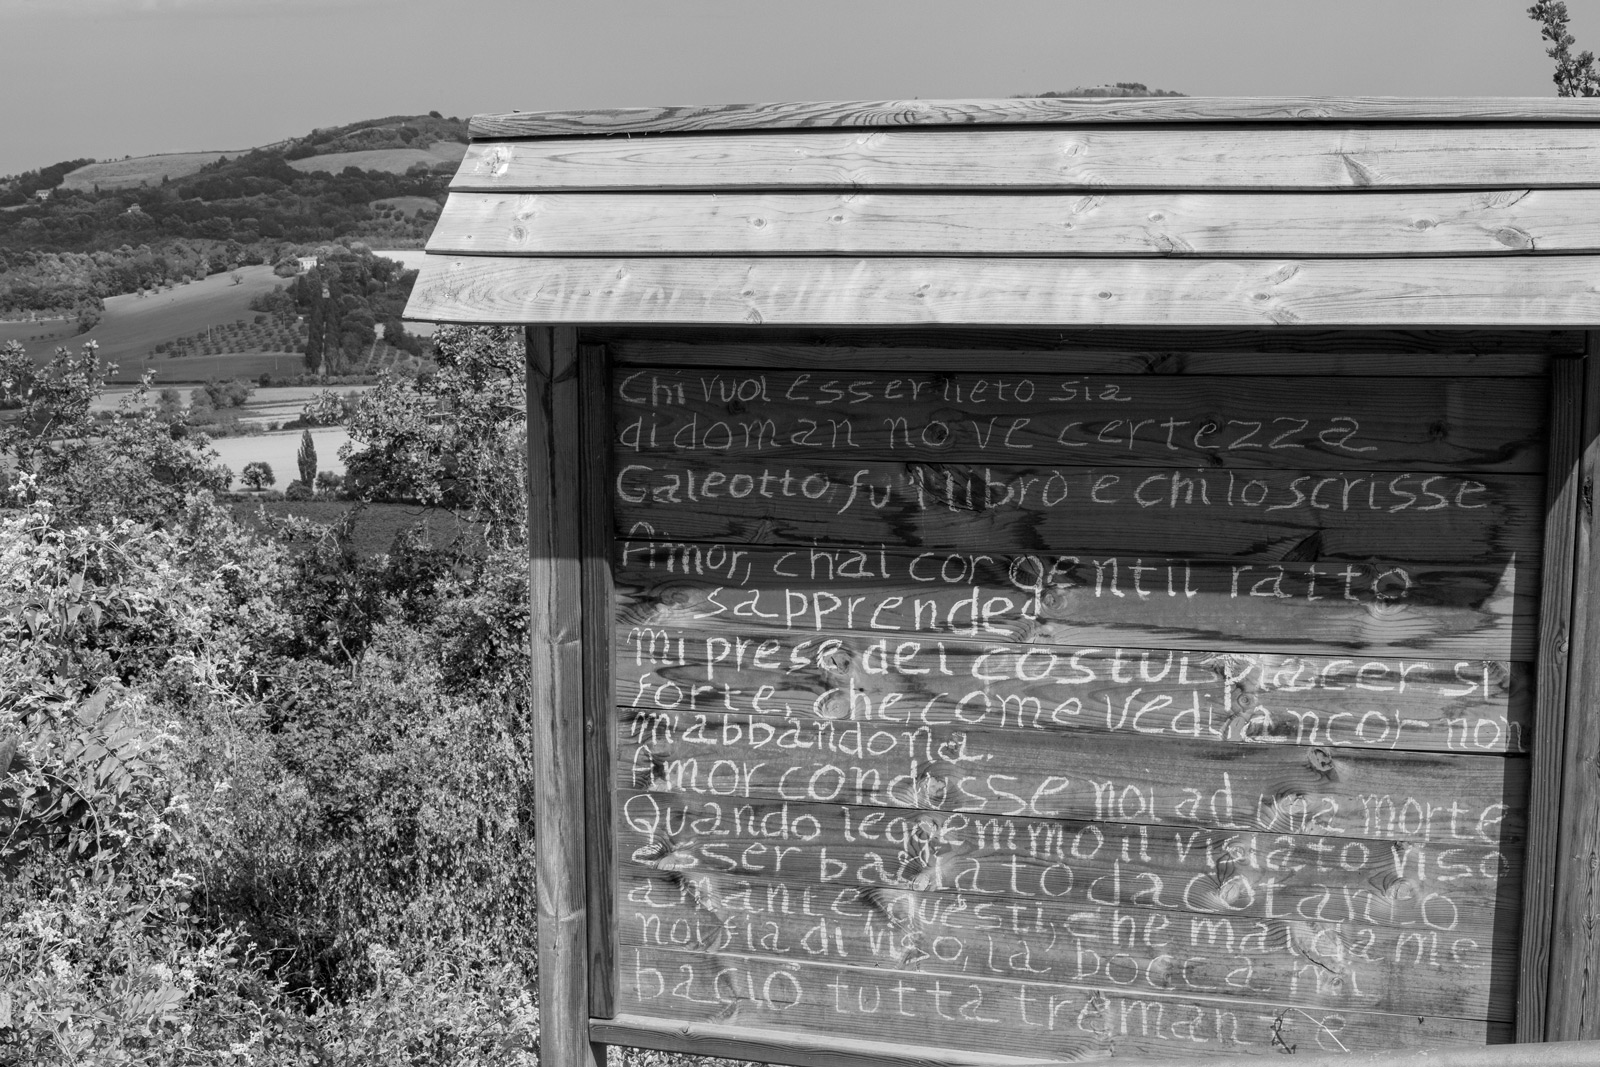 Chi vuol esser lieto sia
di doman no ve certezza
Galeotto fu 'l libro e chi lo scrisse
Amor, ch'al cor gentil ratto
sapprended
mi prese del costui piacer si
forte, che, come vedi, ancor non
m'abbandona.
Amor condusse noi ad una morte
Quando leggemmo il visiato viso
esser baciato da cotanto
amante, questi, che mai da me
noi fia di viso, la bocca mi
baciò tutta tremante